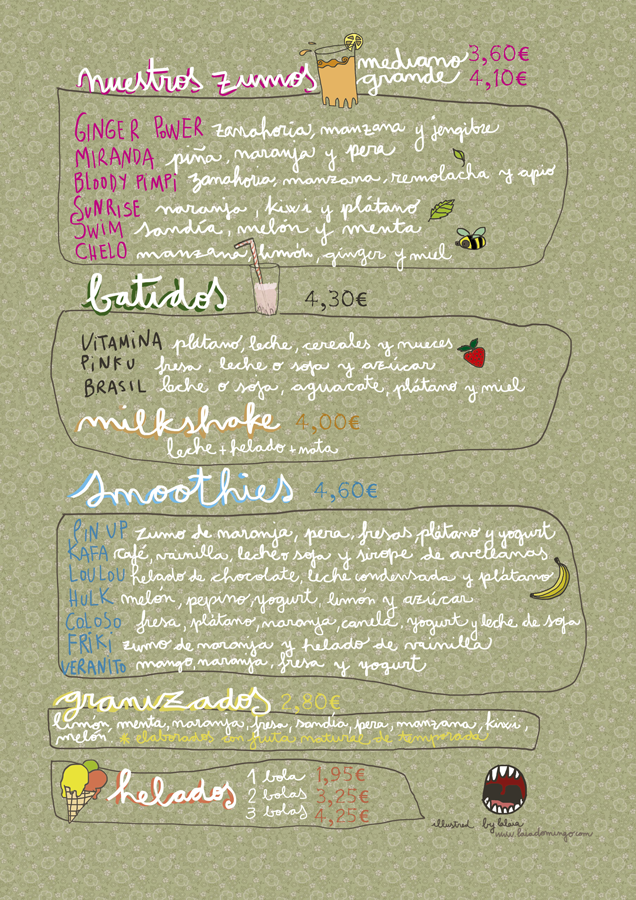 nuestros zumos
mediano 3,60€
grande 4,10€
GINGER POWER zanahoria, manzana y jengibre
MIRANDA piña, naranja y pera
BLOODY PIMPI zanahoria, manzana, remolacha y apio
SUNRISE naranja, kiwi y plátano
SWIM sandía, melón y menta
CHELO manzana, limón, ginger y miel
batidos 4,30€
VITAMINA plátano, leche, cereales y nueces
PINKU fresa, leche o soja y azúcar
BRASIL leche o soja, aguacate, plátano y miel
milkshake 4,00€
leche + helado + nata
smoothies 4,60€
PIN UP zumo de naranja, pera, fresas, plátano y yogurt
KAFA café, vainilla, leche o soja y sirope de avellanas
LOULOU helado de chocolate, leche condensada y plátano
HULK melón, pepino, yogurt, limón y azúcar
COLOSO fresa, plátano, naranja, canela, yogurt y leche de soja
FRIKI zumo de naranja y helado de vainilla
VERANITO mango, naranja, fresa y yogurt
granizados 2,80€
limón, menta, naranja, fresa, sandía, pera, manzana, kiwi,
melón. * elaborados con fruta natural de temporada
helados
1 bola 1,95€
2 bolas 3,25€
3 bolas 4,25€
illustred by